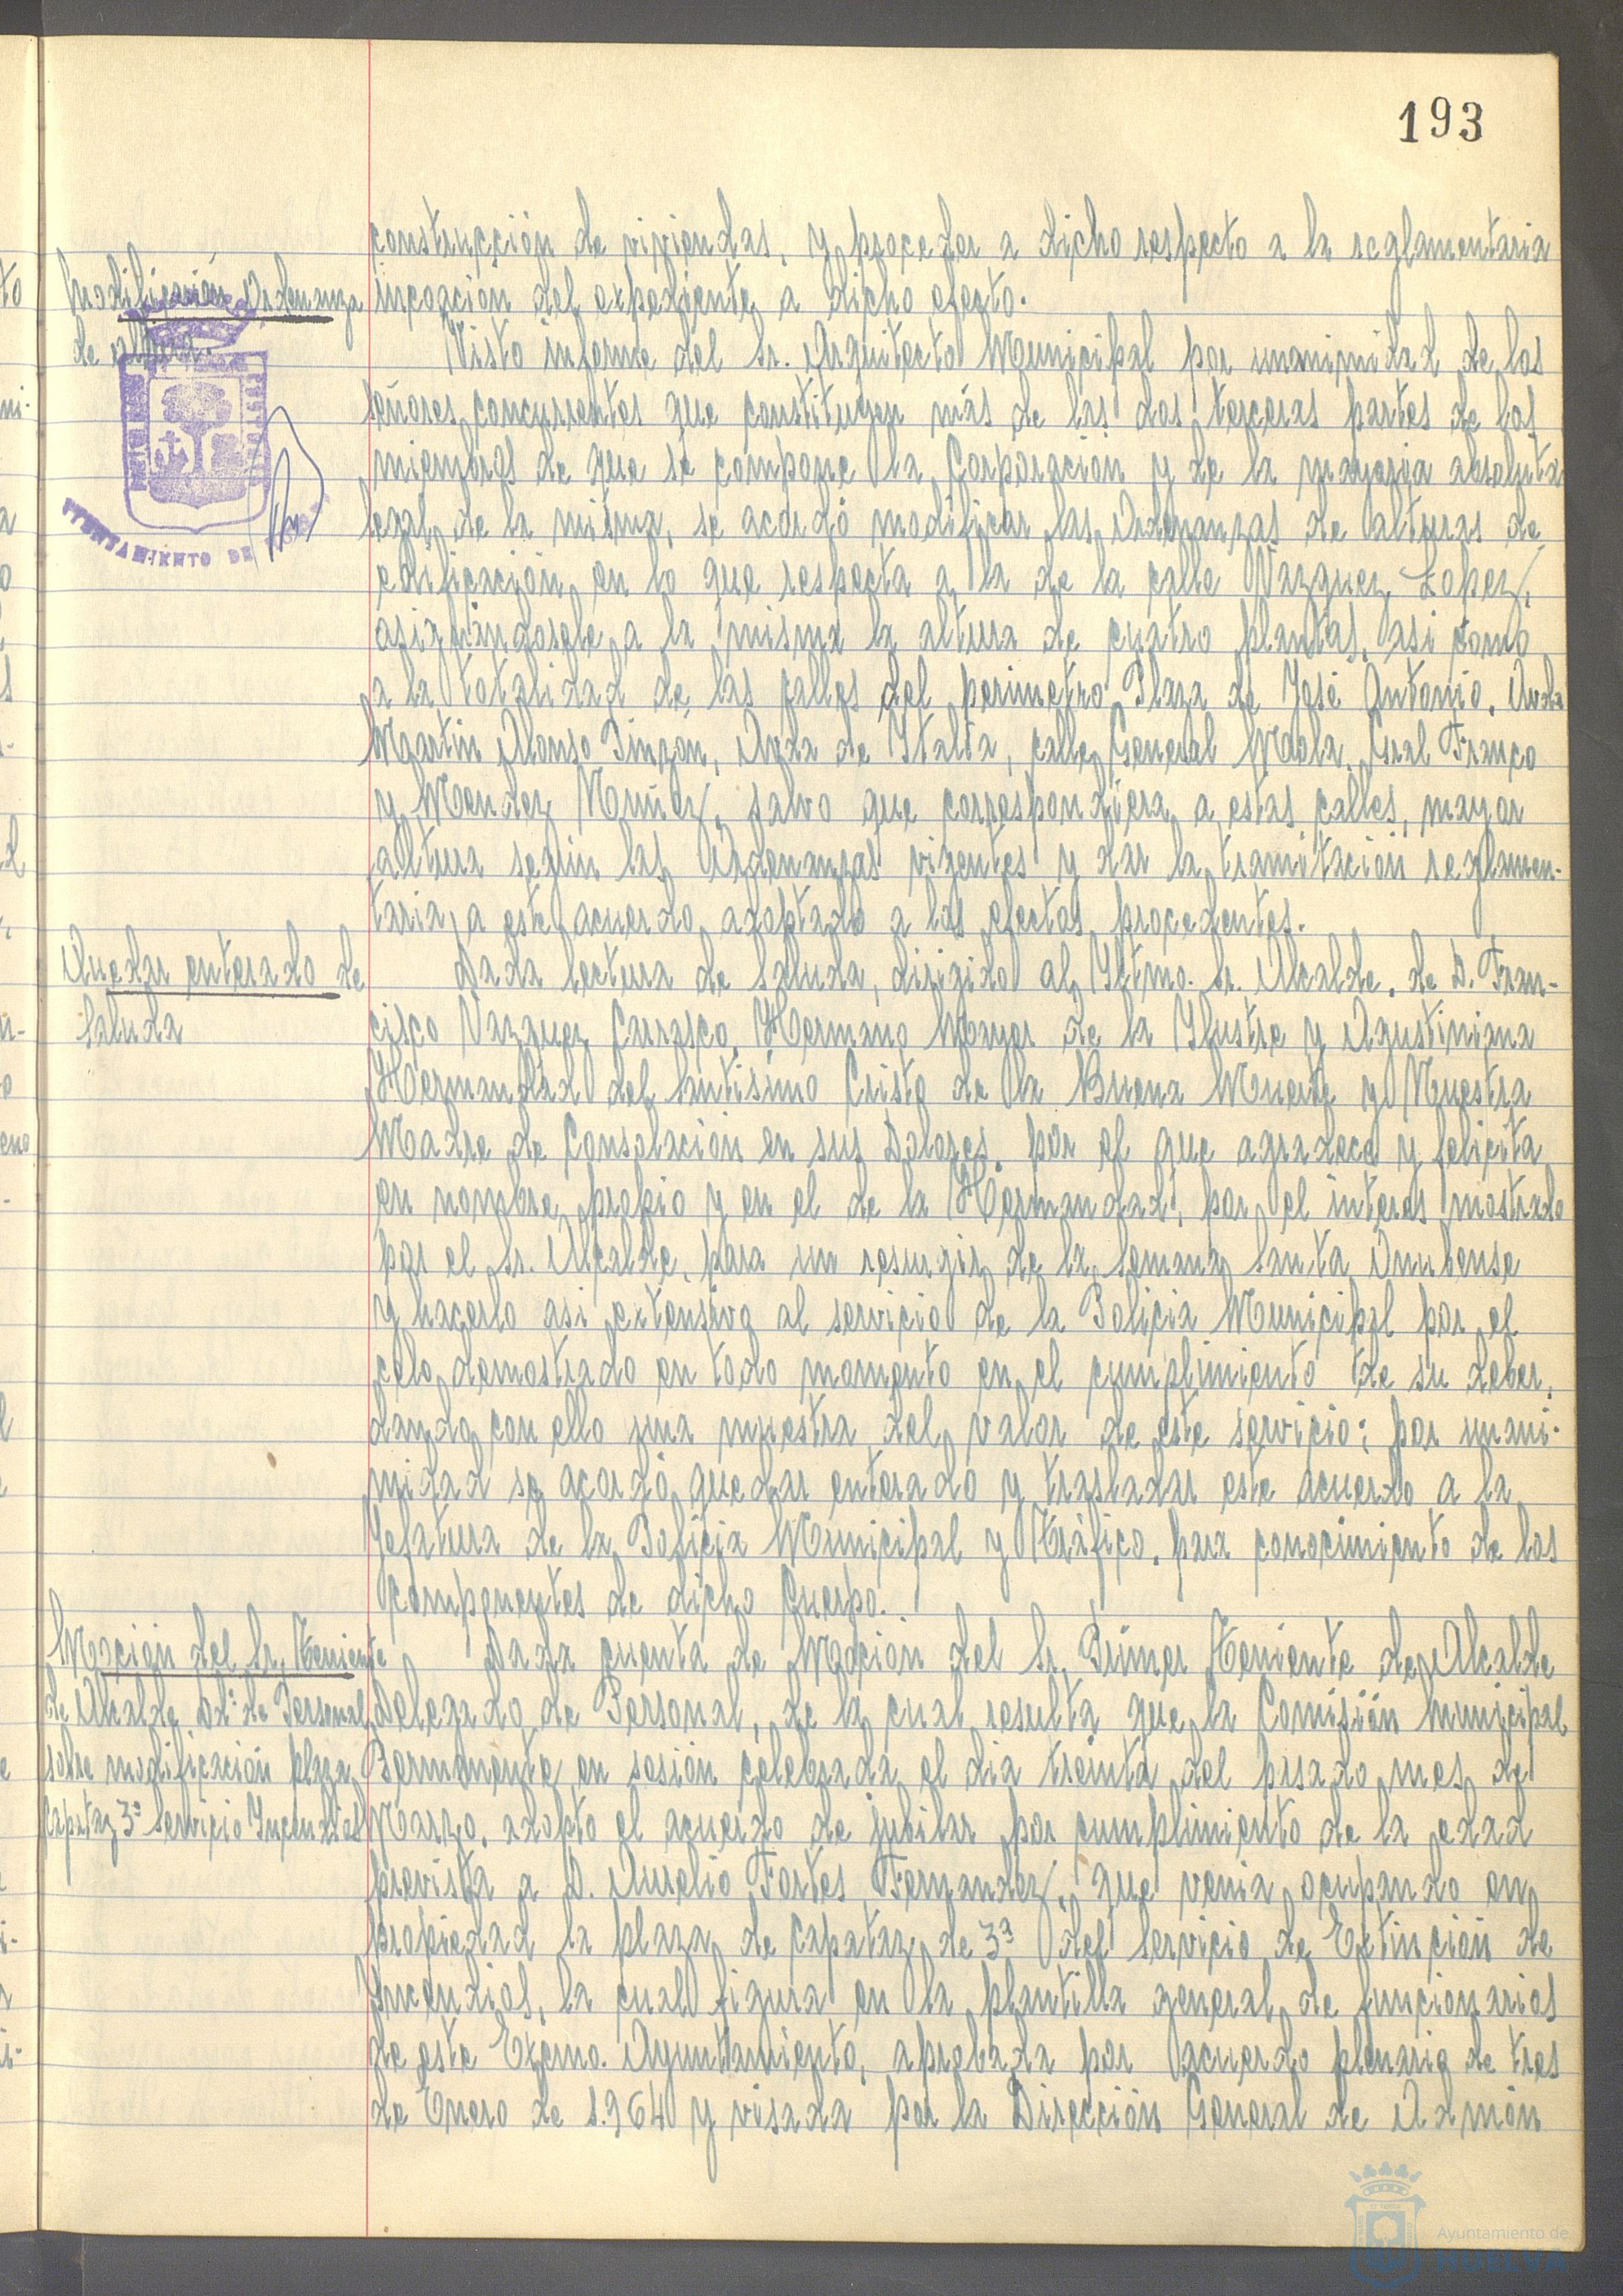 193
construcción de viviendas, y proceder a dicho respecto a la reglamentaria
Modificación Ordenanza
incoación del expediente a dicho efecto.
de altura.
Visto informe del Sr. Arquitecto Municipal por unanimidad de los
señores concurrentes que constituyen más de las dos terceras partes de los
miembros de que se compone la Corporación y de la mayoria absoluta
legal de la misma, se acordó modificar las Ordenanzas de alturas de
AYUNTAMIENTO DE
edificación en lo que respecta a la de la calle Vazquez Lopez,
asignandosele a la misma la altura de cuatro plantas, asi como
a la totalidad de las calles del perimetro Plaza de José Antonio, Avda
Martin Alonso Pinzon, Avda de Italia, calle General Mola, Gral Franco
y Mendez Nuñez, salvo que correspondiera a estas calles, mayor
altura según las Ordenanzas vigentes y dar la tramitación reglamen-
taria a este acuerdo adoptado a los efectos procedentes.
Quedar enterado de
Saluda
Dada lectura de Saluda, dirigido al Iltmo. Sr. Alcalde, de D. Fran-
cisco Vazquez Carrasco, Hermano Mayor de la Ilustre y Agustiniana
Hermandad del Santisimo Cristo de la Buena Muerte y Nuestra
Madre de Consolación en sus Dolores, por el que agradece y felicita
en nombre propio y en el de la Hermandad, por el interes mostrado
por el Sr. Alcalde, para un resurgir de la Semana Santa Onubense
y hacerlo asi extensivo al servicio de la Policia Municipal por el
celo demostrado en todo momento en el cumplimiento de su deber,
dando con ello una muestra del valor de este servicio; por unani-
midad se acordó quedar enterado y trasladar este acuerdo a la
Jefatura de la Policia Municipal y Tráfico, para conocimiento de los
componentes de dicho Cuerpo.
Moción del Sr. Teniente
de Alcalde Dº de Personal
sobre modificación plaza
Capataz 3ª Servicio Incendios
Dada cuenta de Moción del Sr. Primer Teniente de Alcalde
Delegado de Personal, de la cual resulta que la Comisión Municipal
Permanente en sesión celebrada el dia treinta del pasado mes de
Marzo, adopto el acuerdo de jubilar por cumplimiento de la edad
prevista a D. Aurelio Fortes Fernandez, que venia ocupando en
propiedad la plaza de Capataz de 3ª del Servicio de Extinción de
Incendios, la cual figura en la plantilla general de funcionarios
de este Excmo. Ayuntamiento, aprobada por acuerdo plenario de tres
de Enero de 1.964 y visada por la Dirección General de Admón
Ayuntamiento de
HUELVA